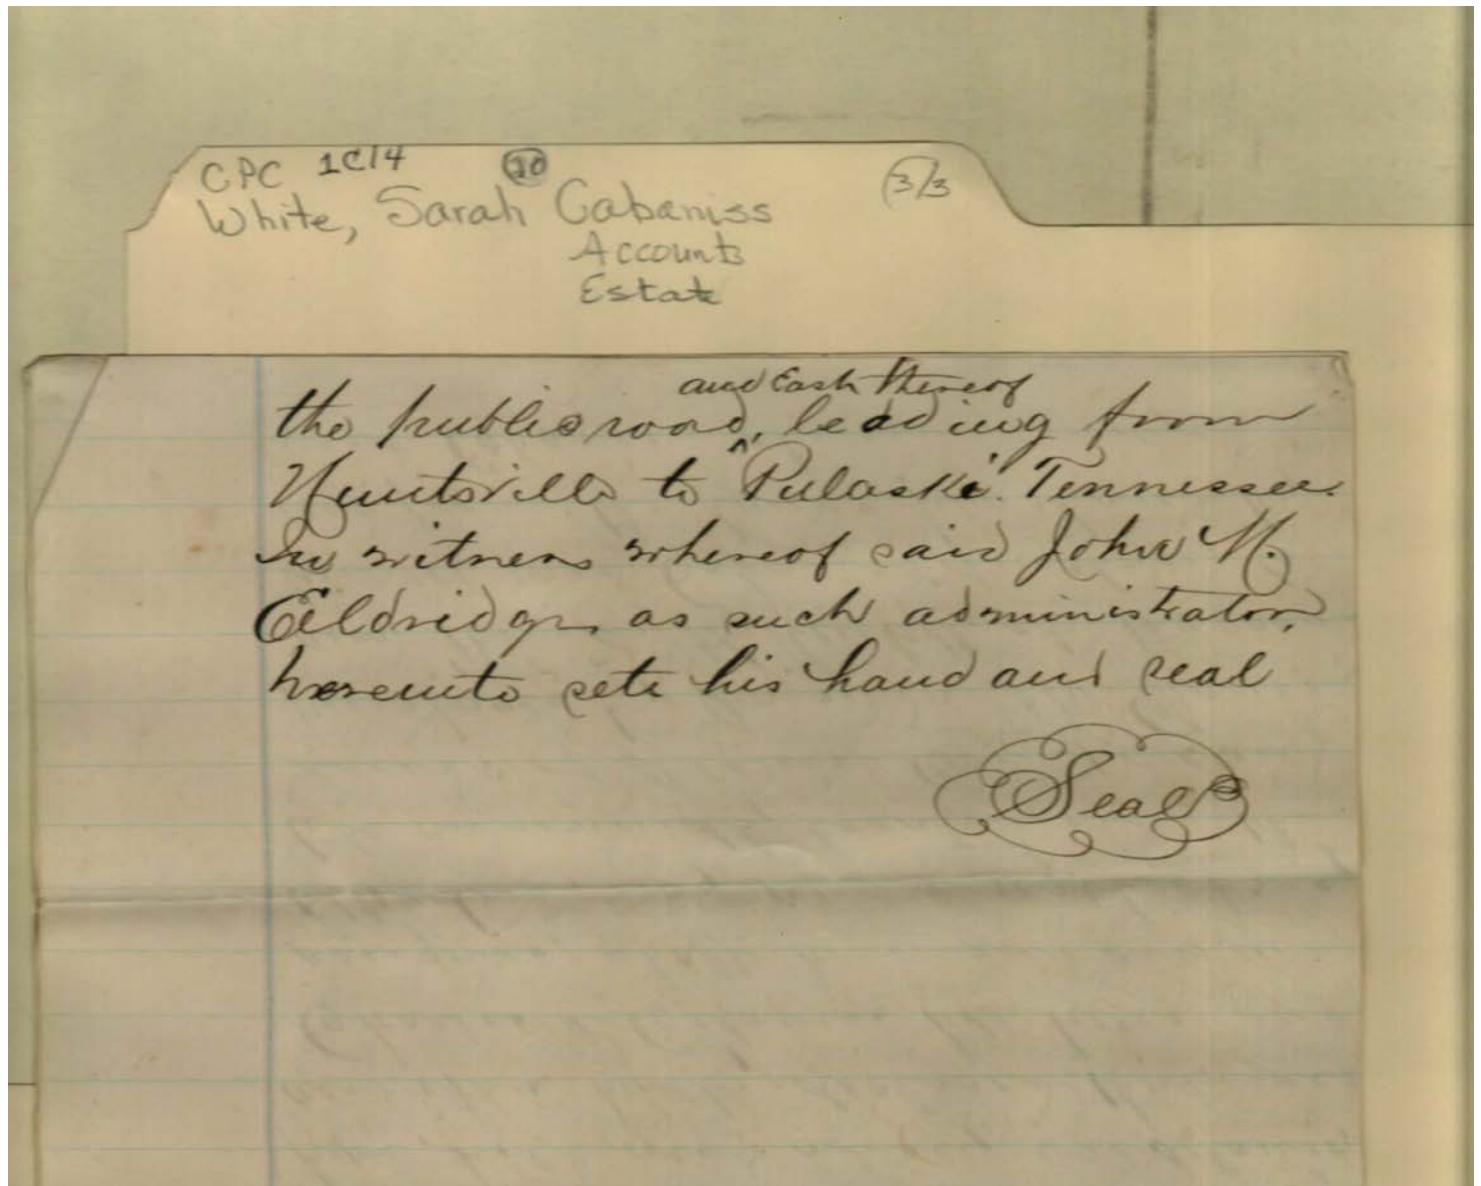 CPC 1C14 20 3/3
White, Sarah Cabaniss
Accounts
Estate
and East thereof
the public road, leading from
Huntsville to Pulaski. Tennessee.
In witness whereof said John H.
Eildridge, as such administrator,
hereunto sets his hand and seal
Seal